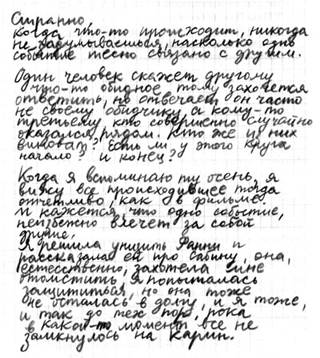 Странно,
Когда что-то происходит, никогда
не задумываешься, насколько одно
событие тесно связано с другим.
Один человек скажет другому
что-то обидное, тому захочется
ответить, но отвечает он часто
не своему обидчику, а кому-то
третьему, кто совершенно случайно
оказался рядом. Кто же из них
виноват? Есть ли у этого круга
начало? и конец?
Когда я вспоминаю ту осень, я
вижу все происходившее тогда
отчетливо, как в фильме.
и кажется, что одно событие,
неизбежно влечет за собой
другие,
Я решила унизить Фанни и
рассказала ей про Сабину, она,
естественно, захотела мне
отомстить, я попыталась
защититься, но она тоже
не осталась в долгу, и я тоже,
и так до тех пор, пока
в какой-то момент все не
замкнулось на Карин.